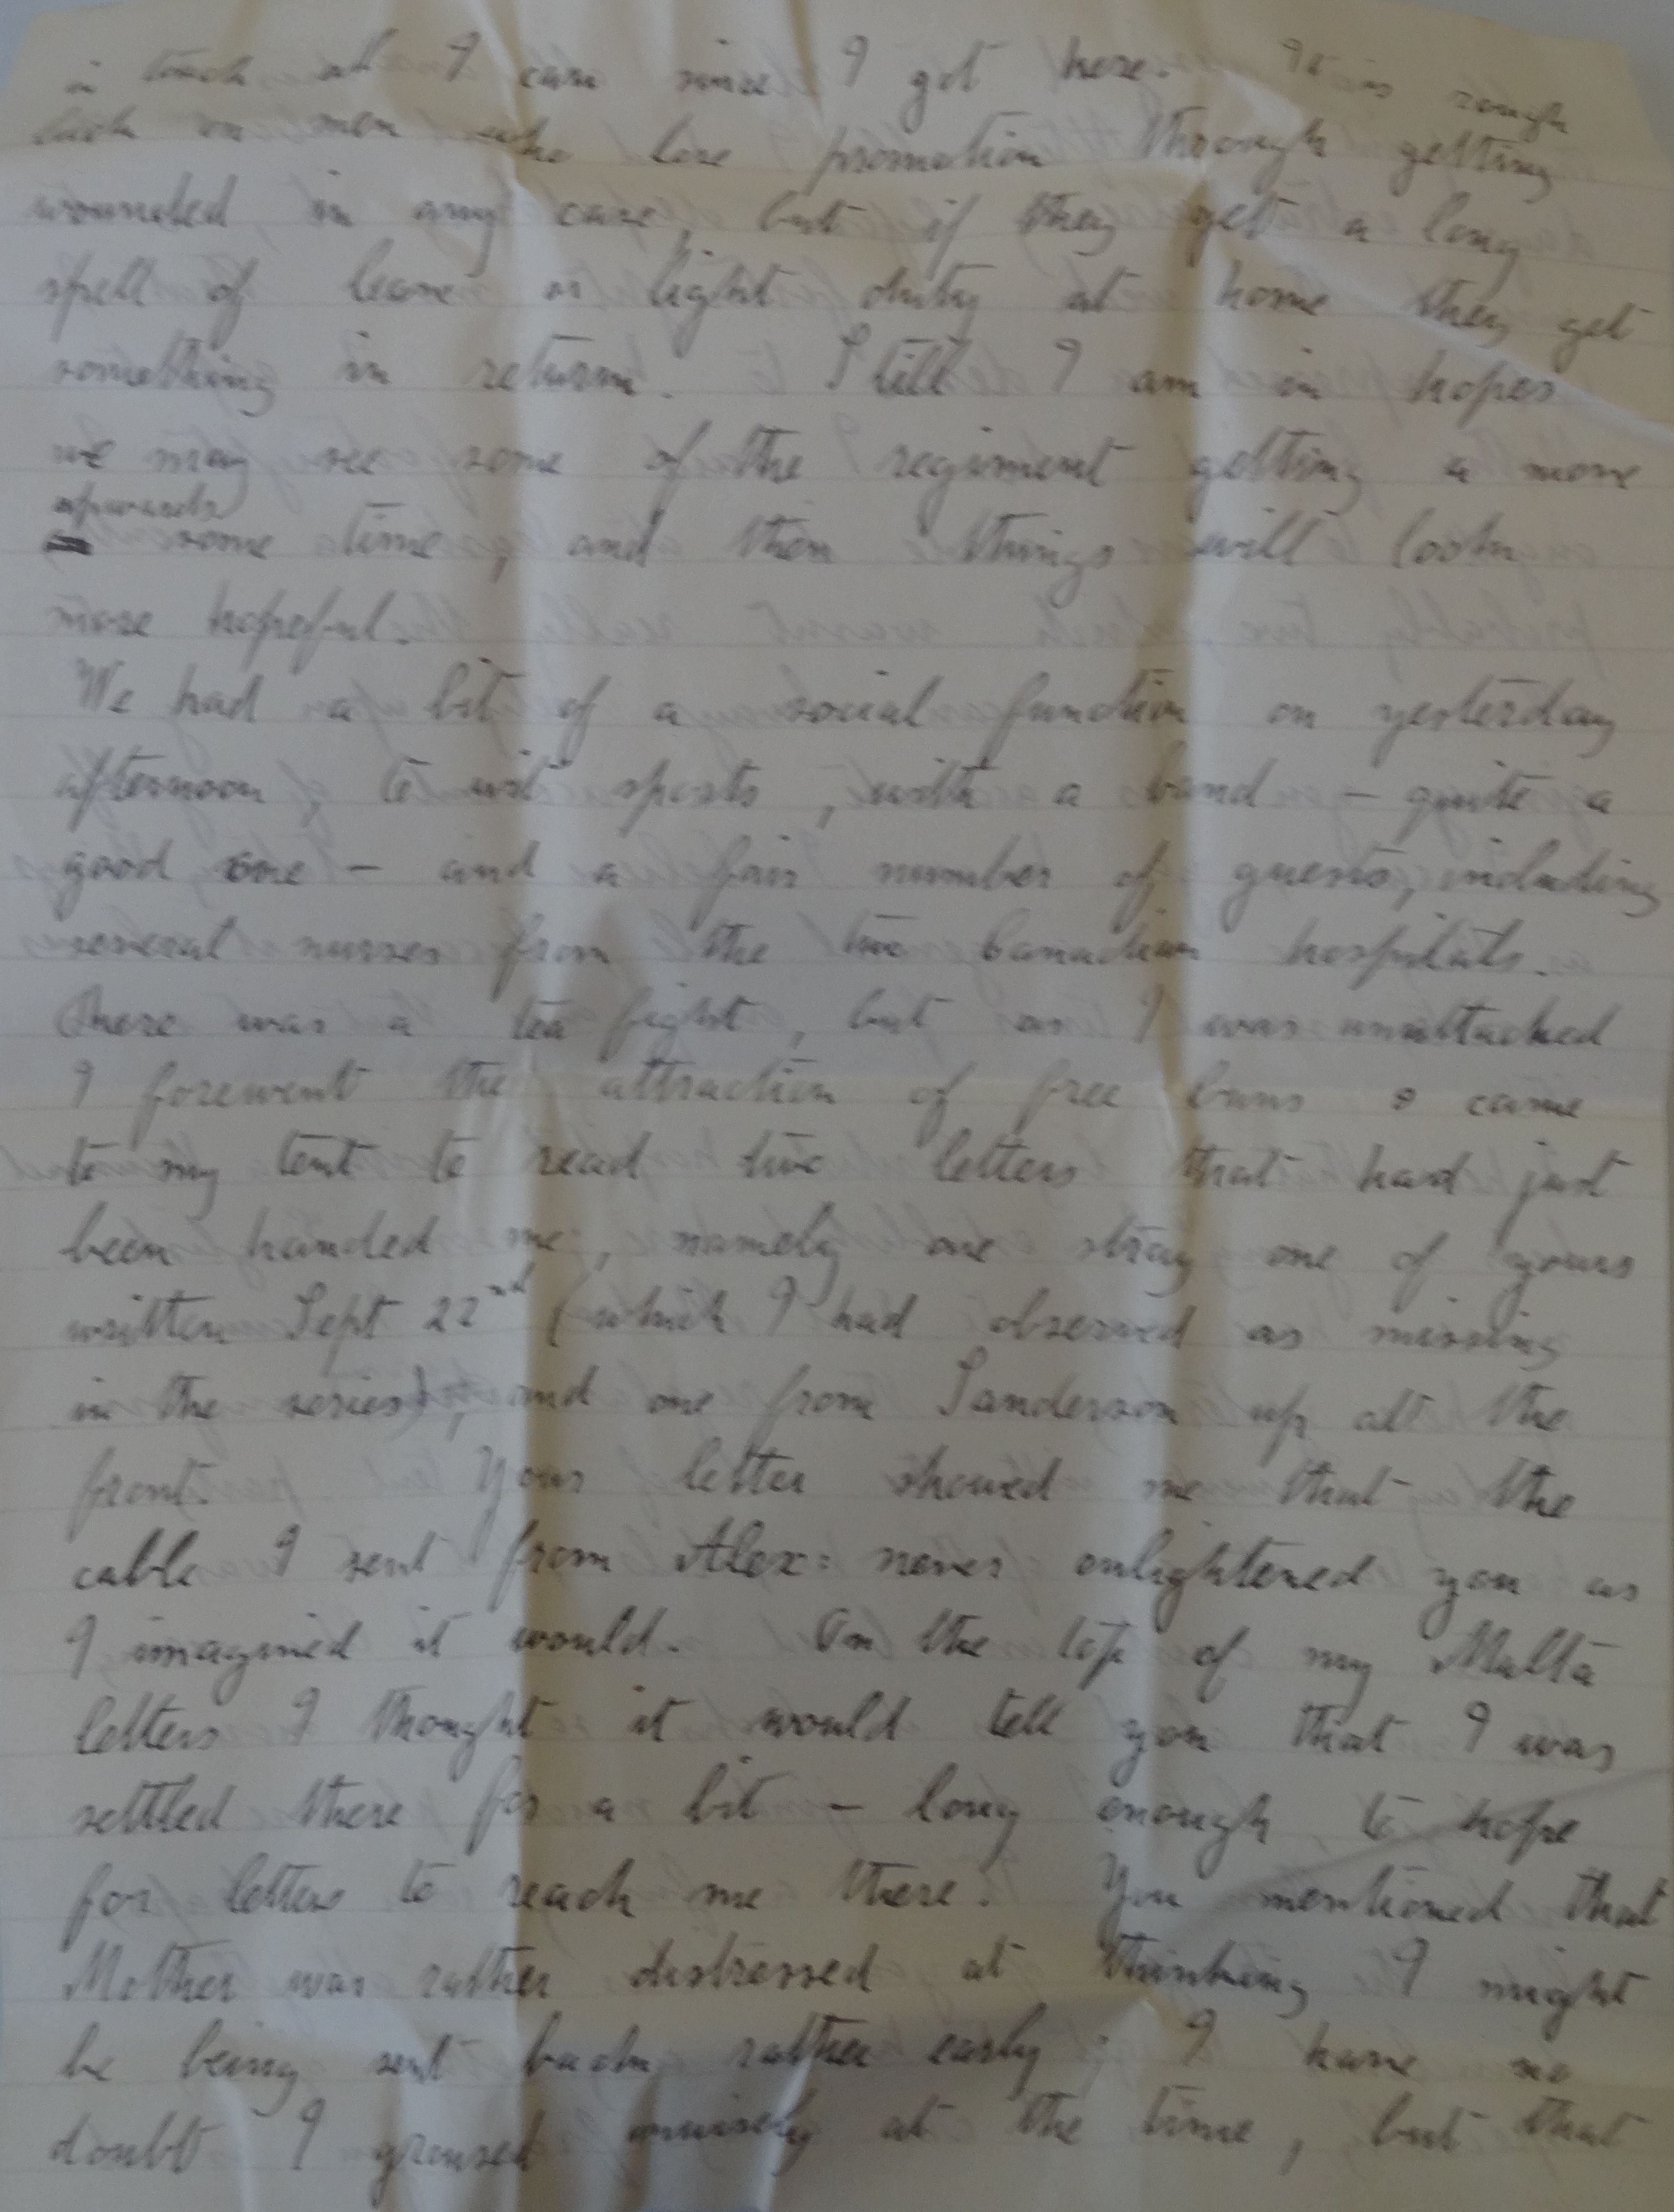 in touch as I can since I got here. It is rough
luck on men who lose promotion through getting
wounded, in any case, but if they get a long
spell of leave or light duty at home they get
something in return. Still I am in hopes
we may see some of the regiment getting a move
upwards
some time, and then things will look
more hopeful.
We had a bit of a social function on yesterday
afternoon, to wit sports, with a band – quite a
good one – and a fair number of guests, including
several nurses from the two Canadian hospitals.
There was a tea fight, but as I was unattached
I forewent the attraction of free buns & came
to my tent to read two letters that had just
been handed me, namely one stray one of yours
written Sept 22nd (which I had observed as missing
in the series), and one from Sanderson up at the
front. Your letter showed me that the
cable I sent from Alex: never enlightened you as
I imagined it would. On the top of my Malta
letters I thought it would tell you that I was
settled there for a bit – long enough, to hope
for letters to reach me there. You mentioned that
Mother was rather distressed at thinking I might
be being sent back rather early; I have no
doubt I groused unwisely at the time, but that